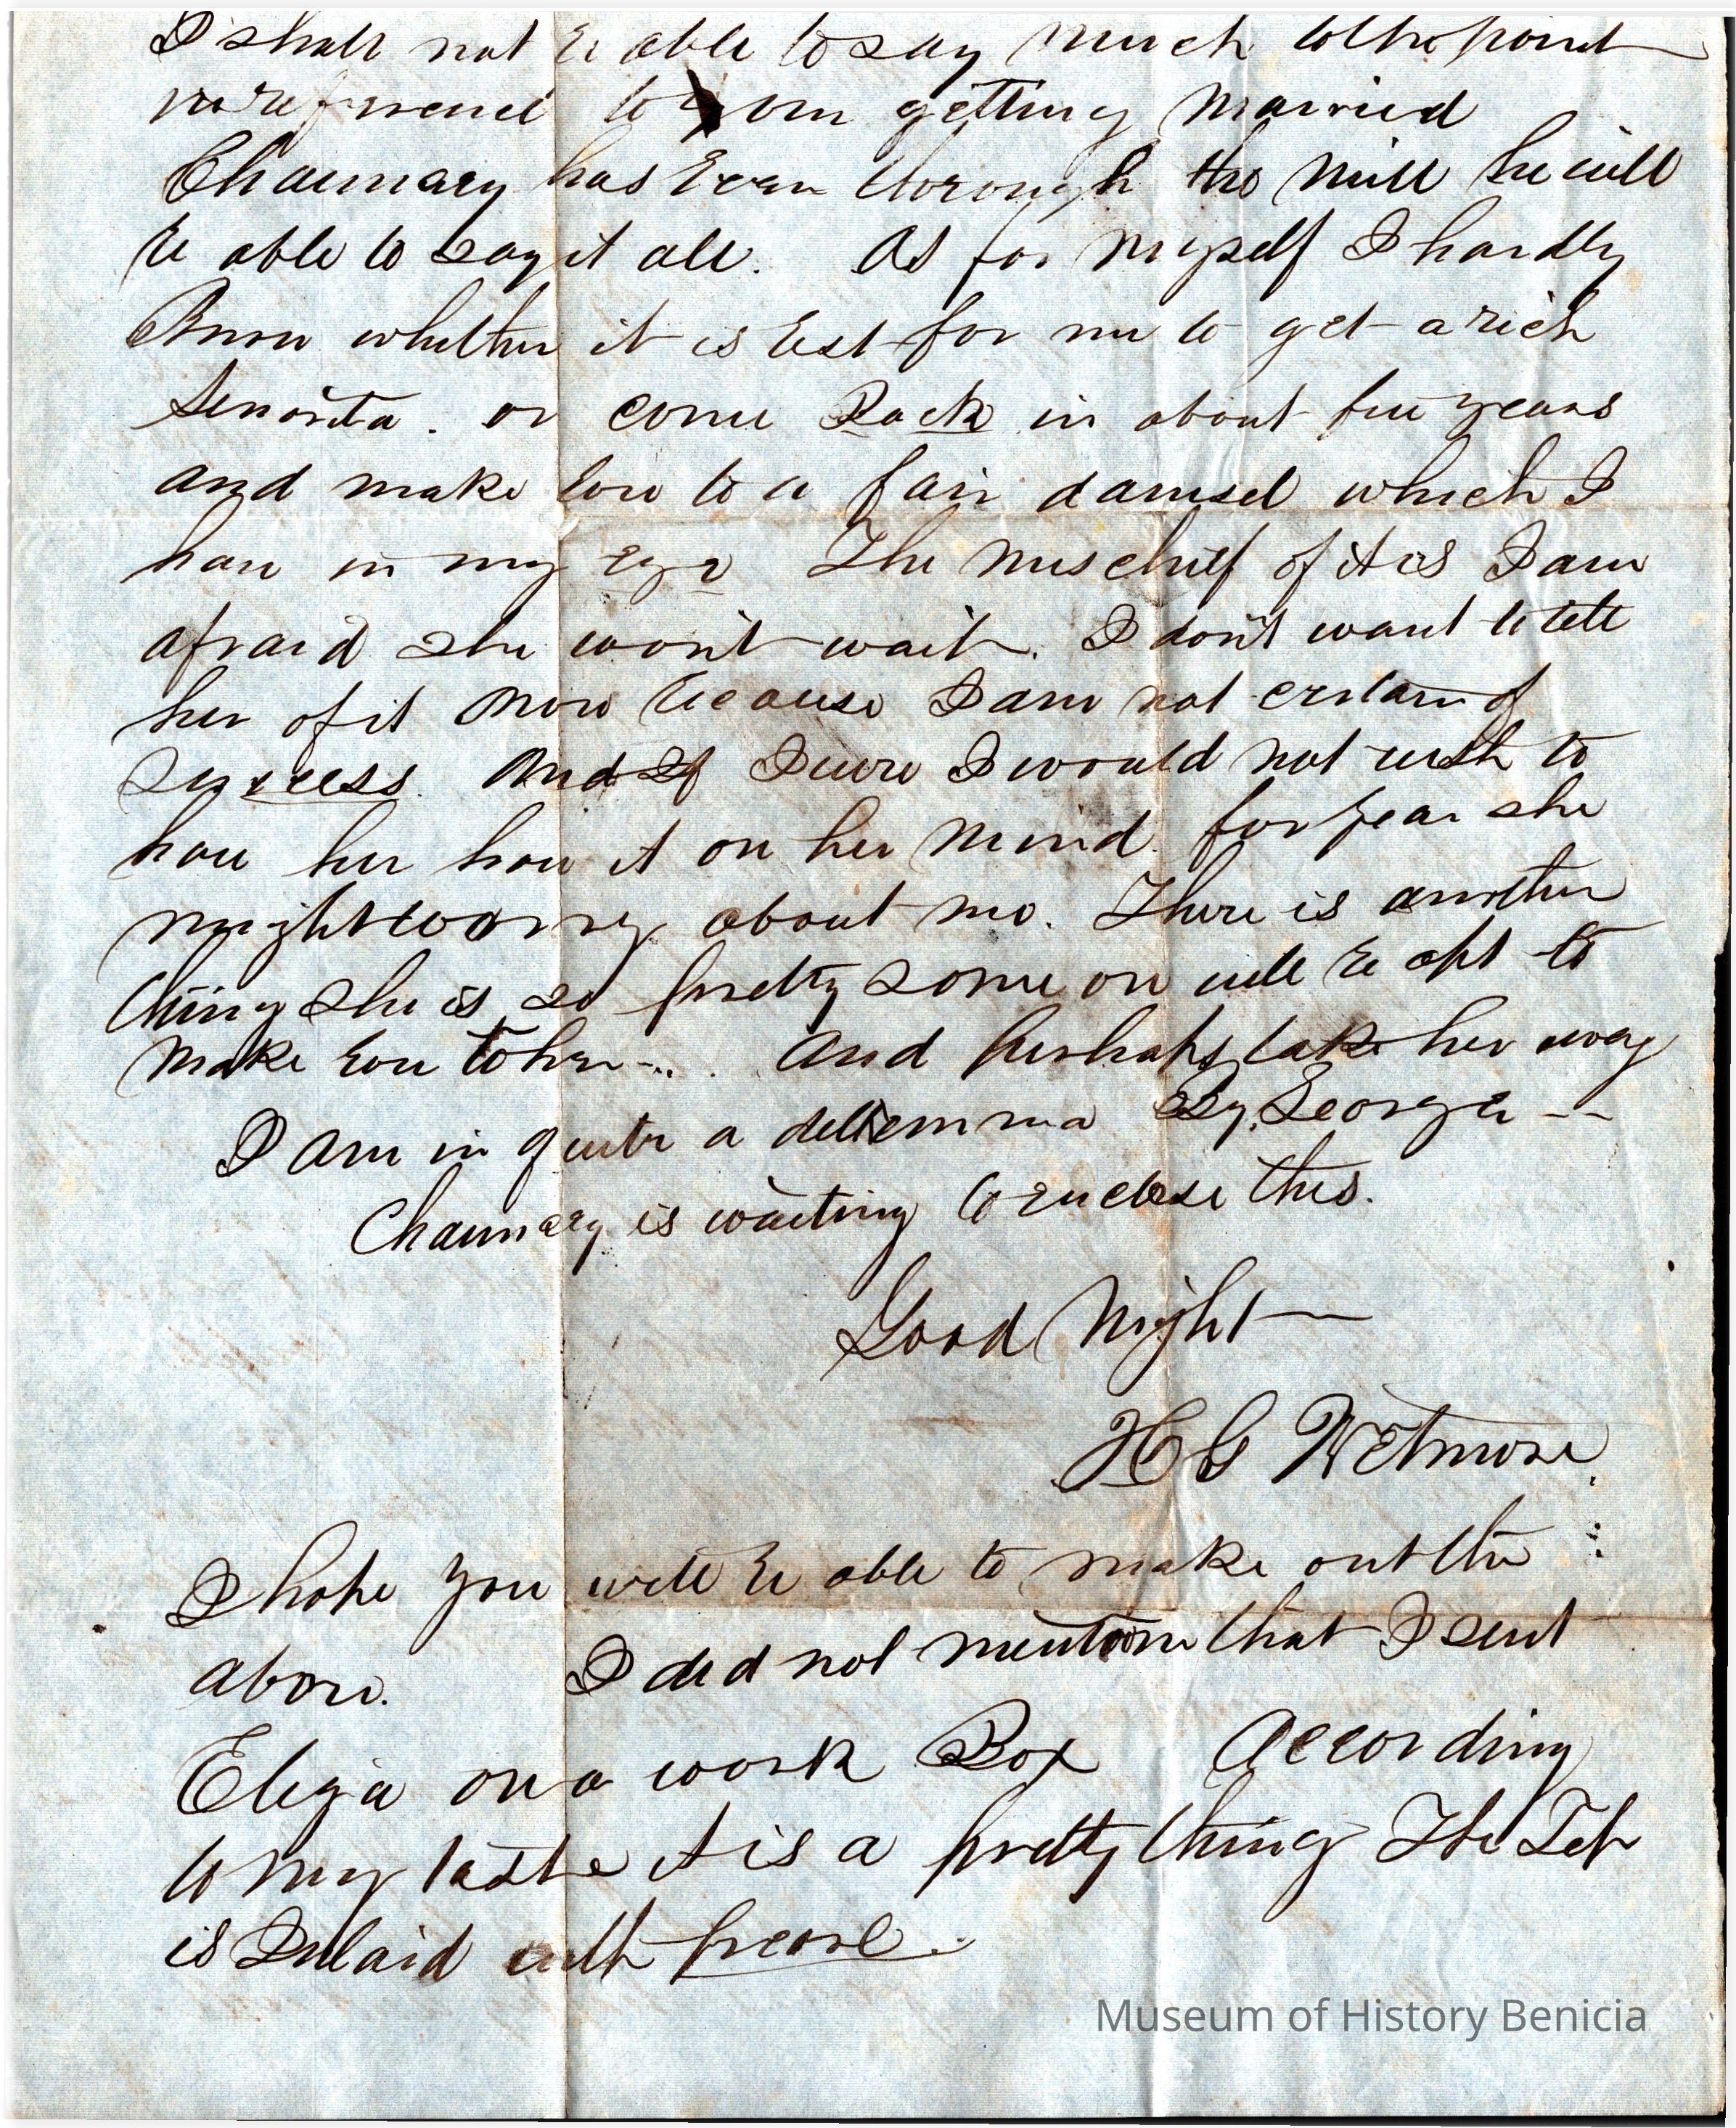 I shall not be able to say much to the point
in refrence to your getting married
Chauncey has been thorough the mill he will
be able to say it all. As for myself I hardly
know whether it is best for me to get a rich
Senorita. or come Back in about five years
and make love to a fair damsel which I
have in my eye The mischief of it is I am
afraid she won't wait. I don't want to tell
her of it now because I am not certain of
success. And If I were I would not wish to
have her have it on her mind. for fear she
might worry about me. There is another
thing she is so pretty some on will be apt to
make love to her--.. And perhaps take her away
I am in quite a dellemma By George --
Chauncey is waiting to enclose this.
Good Night
H G Wetmore.
I hope you will be able to make out the
above. I did not mention that I sent
Eliza on a work Box According
to my taste it is a pretty thing The Top
is Inlaid with pearl.
Museum of History Benicia